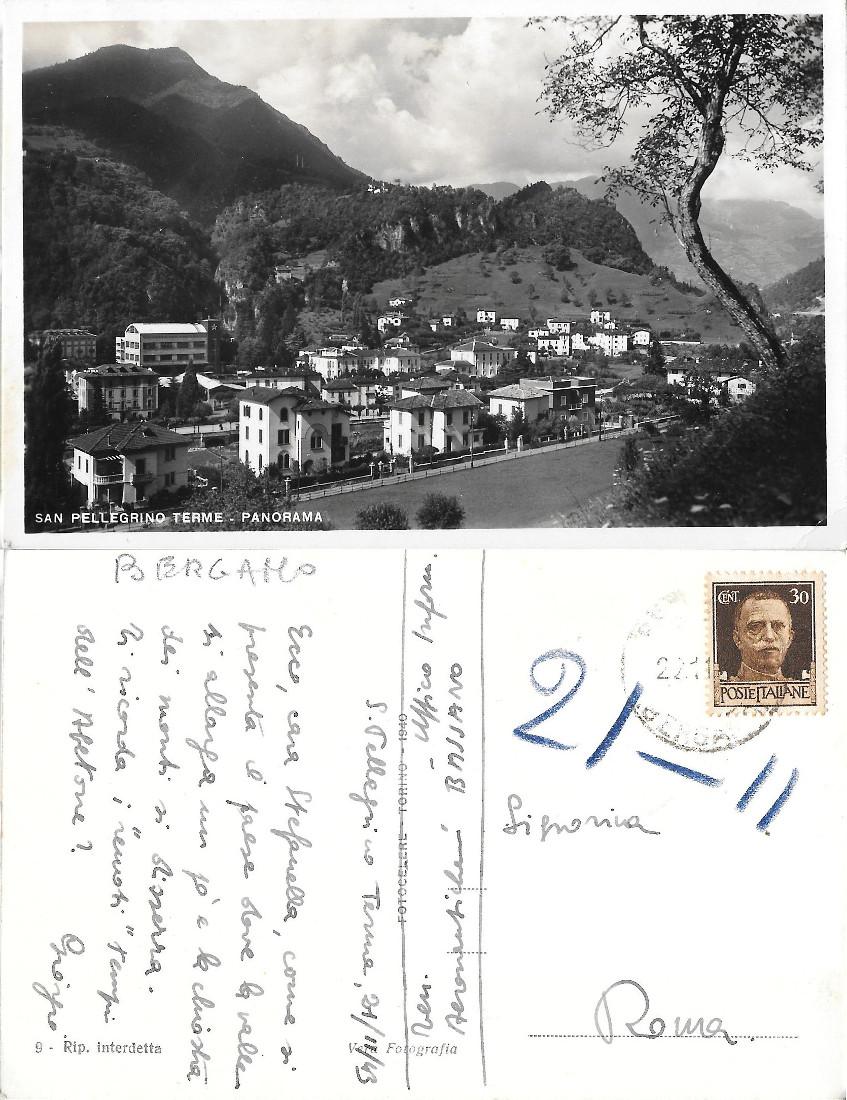 SAN PELLEGRINO TERME - PANORAMA
BERGAMO
S. Pellegrino Terme, 21/11/43
Ecco, cara Stefanella, come si
presenta il paese dove la valle
si allarga un po' e la chiostra
dei monti si disserra.
Ti ricorda i "remoti" tempi
dell'Abetone?
Giorgio
Ufficio Inform.
Aeronautiche BASSANO
FOTOCELERE - TORINO - 1940
9 - Rip. interdetta
Vera Fotografia
CENT. 30
POSTE ITALIANE
22.11
21-11
Signorina
Roma